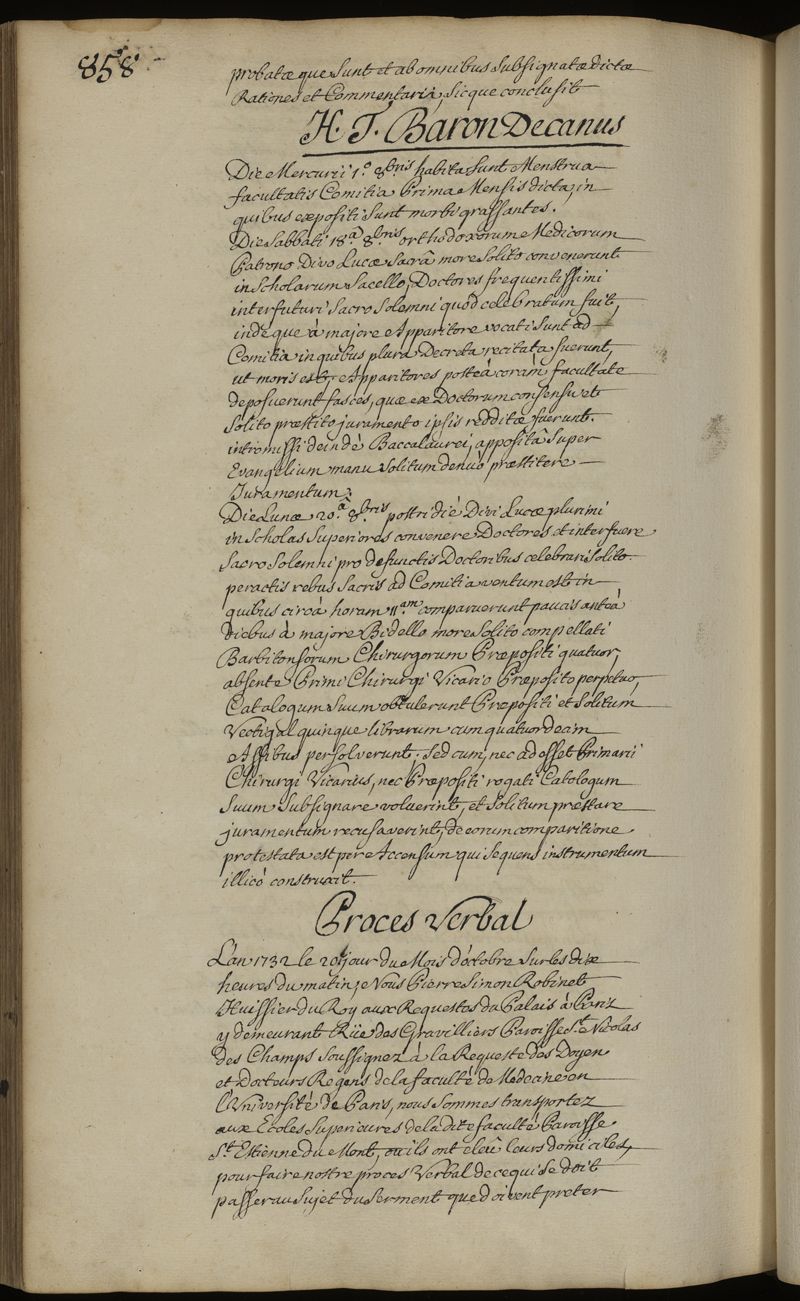 858
probatæque sunt et ab omnibus subsignatæ dictæ
Rationes et Commentaria, sicque conclusit
H. T. Baron Decanus
Die Mercurii 1.º 8.bris habita sunt Menstrua
facultatis Comitia Prima Mensis dicta, in
quibus expositi sunt morbi grassantes.
Die Sabbati 18.â 8.bris orthodoxorum Medicorum
Patrono Divo Lucæ Sacrâ more Solito convenerunt
in Scholarum Sacello, Doctores frequentissimi
interfuturi Sacro Solemni quod celebratum fuit,
indeque à majore Apparitore vocati sunt ad
Comitia in quibus plura Decreta recitata fuerunt,
ut moris est, Apparitores posteà coràm facultate
deposuerunt fasces, quæ ex Doctorum consensu et
Solito præstito juramento ipsis redditæ fuerunt.
intromissi deindè Baccalaurei, appositâ super
Evangelium manu solitum denuò præstitere
Juramentum.
Die Lunæ 20.â 8.bris postridiè Divi Lucæ plurimi
in Scholas Superiores convenere Doctores et interfuere
Sacro Solemni pro defunctis Doctoribus celebrari solito.
peractis rebus Sacris ad Comitia ventum est in
quibus circà horam 11.am comparuerunt paucis anteà
diebus à majore Bidello more Solito compellati
Barbitonsorum Chirurgorum Præpositi quatuor,
absente Primi Chirurgi Vicario Præposito perpetuo,
Catalogum Suum obtulerunt Præpositi et Solitum
Vectigal quinque librarum cum quatuordecim
Assibus persolverunt; Sed cum, nec adesset Primarii
Chirurgi Vicarius, nec Præpositi rogati Catologum
Suum Subsignare voluerint, et Solitum præstare
juramentum recusaverint, de eorum comparitione
protestata est per Accensum qui Sequens instrumentum
illicò construxit.
Proces Verbal
L'an 1732 le 20 jour du Mois d'octobre sur les dix
heures du matin, je Nous Pierre Simon Robinet
Huissier du Roy aux Requestes du Palais à Paris
y demeurant Rüe des Gravilliers Paroisse St. Nicolas
des Champs Soussignez à la Requeste des Doyen
et Docteurs Regens de la faculté de Medecine en
l'Université de Paris, nous sommes transportez
aux Ecoles Superieures de ladite faculté Paroisse
St. Estienne du Mont, où ils ont eleû leurs domiciles,
pour faire nostre proces Verbal de ce qui se doit
passer au Sujet du Serment que doivent preter